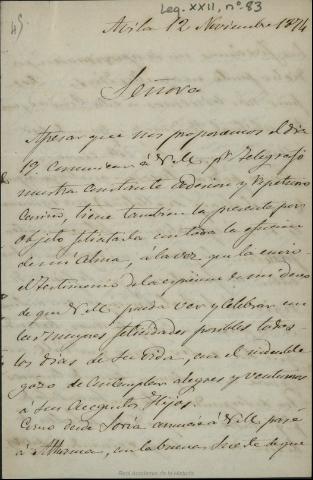 45
Leg. XXII, nº. 83
Avila 12 Noviembre 1874
Señora
Apesar que nos proponemos el dia
19. comunicar á V.M. pr. Telegrafo
nuestra constante adesion y respetuoso
Cariño, tiene tambien la presente por
objeto felicitarla con toda la efusion
de mi Alma, á la vez que la envio
el testimonio de la espresion de mis deseos
de que V.M. pueda ver y celebrar con
las mayores felicidades posibles todos
los dias de su vida, con el indecible
gozo de contemplar alegres y venturosos
á Sus Augustos Hijos.
Como desde Soria anuncié á V.M. pasé
á Alhama, con la buena suerte de que
Real Academia de la Historia